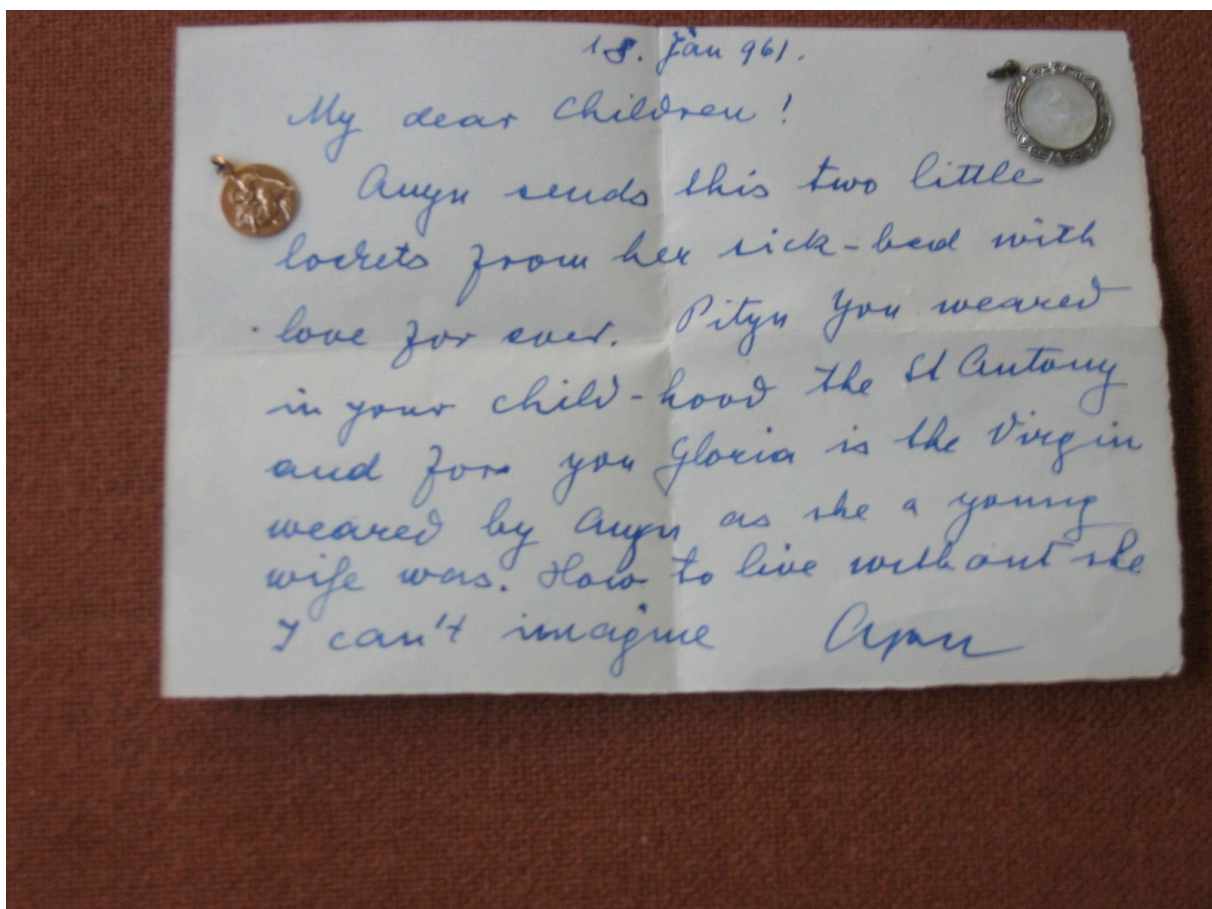 18. Jan 961.
My dear Children!
Anyu sends this two little
lockets from her sick-bed with
love for ever. Pityu You weared
in your child-hood the St Antony
and for you Gloria is the Virgin
weared by Anyu as she a young
wife was. How to live without she
I can't imagine Apu